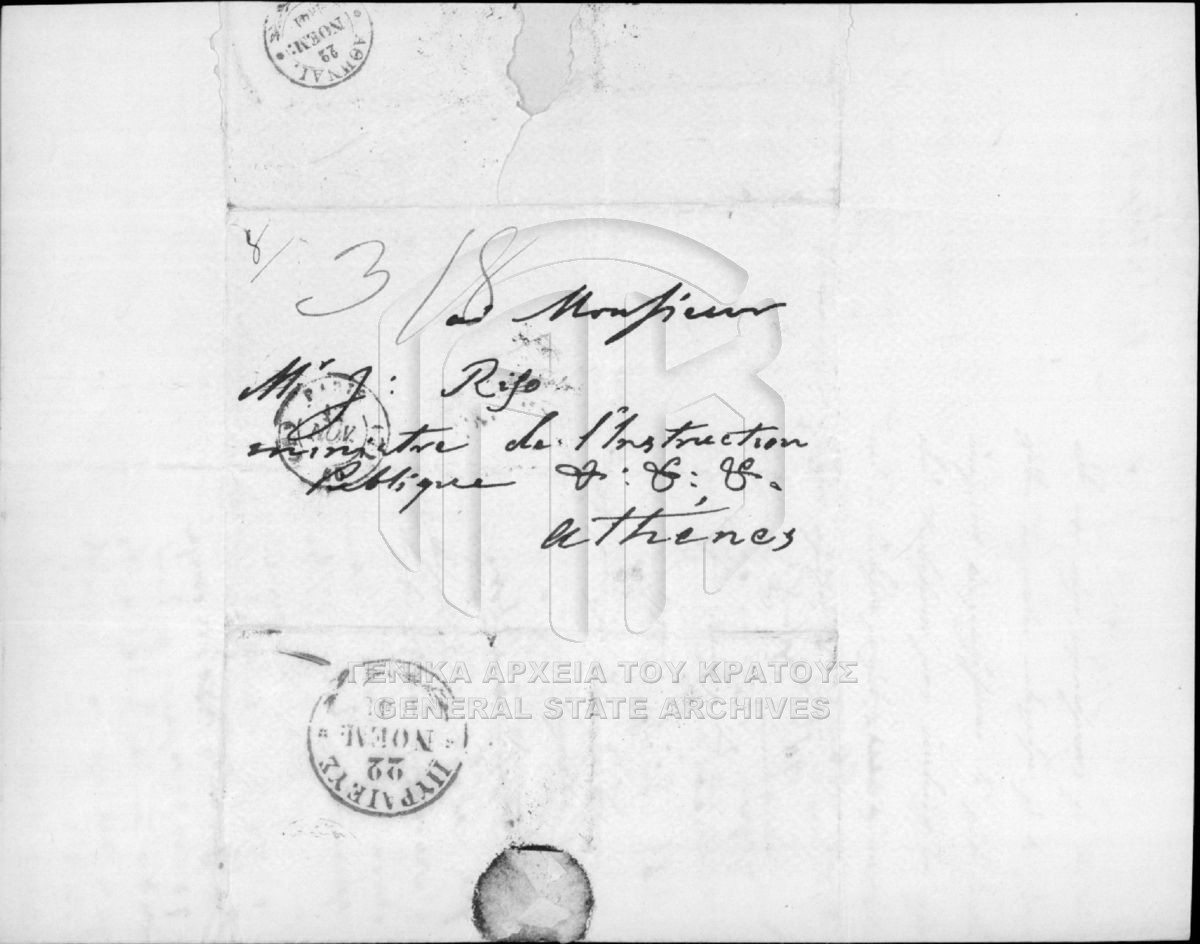 ΑΘΗΝΑΙ.
22
ΝΟΕΜ:
8/
3/8
à Monsieur
Mr J: Riso
ministre de l'Instruction
Publique &: &: &.
Athénes
NOV.
ΓΕΝΙΚΑ ΑΡΧΕΙΑ ΤΟΥ ΚΡΑΤΟΥΣ
GENERAL STATE ARCHIVES
ΝΟΕΜ
22
ΠΥΡΑΙΕΥΣ